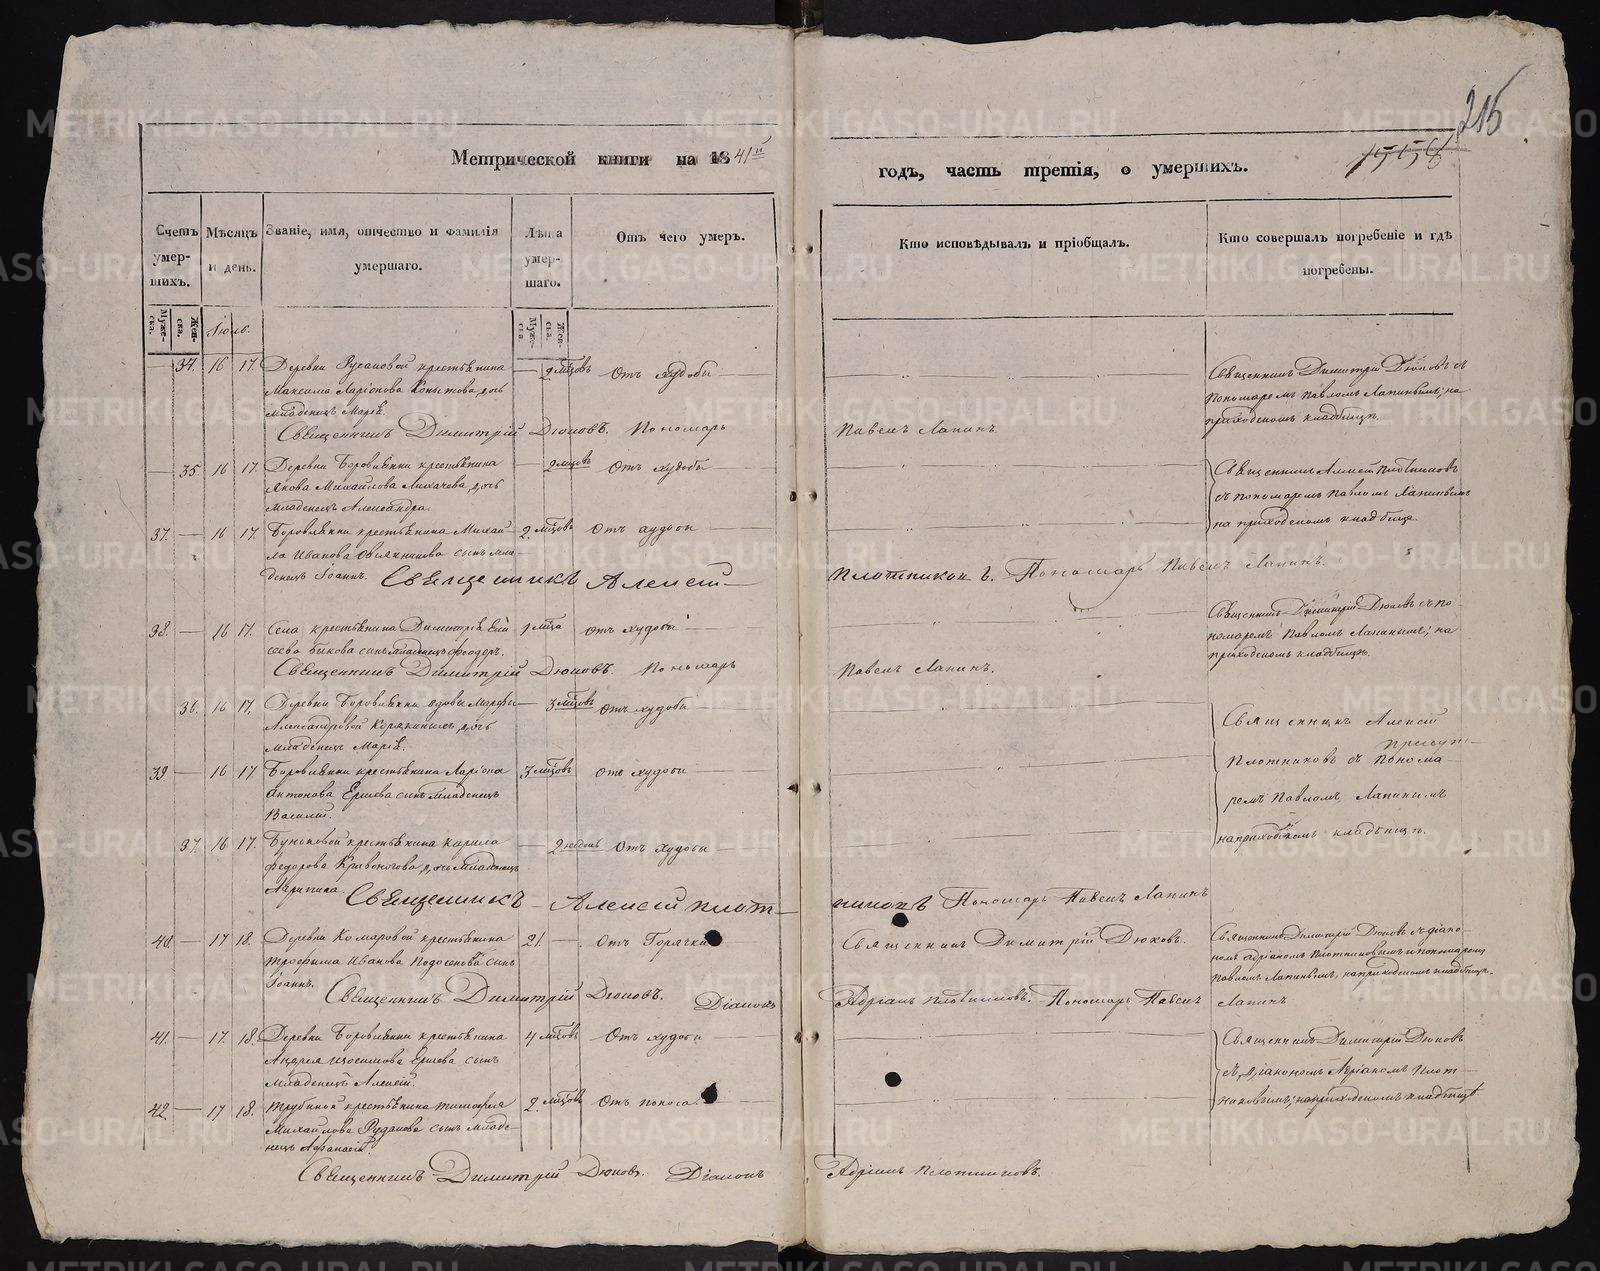 215
1556
Метрической книги на 1841й
годъ, часть третія, о умершихъ.
Счетъ умер-
шихъ.
Мѣсяцъ
и день.
Званіе, имя, отчество и фамилія
умершаго.
Лѣта
умер-
шаго.
Отъ чего умеръ.
Кто исповѣдывалъ и пріобщалъ.
Кто совершалъ погребеніе и гдѣ
погребены.
Муже-
ска.
Жен-
ска.
Іюль.
Муже-
ска.
Жен-
ска.
34. 16 17. Деревни Русаковой крестьянина
Максима Ларіонова Копытова дочь
младенецъ Марія.
2 мѣсцовъ Отъ худобы
Священникъ Димитрій Дюковъ съ
пономаремъ Павломъ Лапинымъ, на
приходскомъ кладбищѣ.
Священникъ Димитрій Дюковъ. Пономарь
Павелъ Лапинъ
35 16 17. Деревни Боровлянки крестьянина
Якова Михайлова Лихачева дочь
младенецъ Александра.
2 мѣсцовъ Отъ худобы
Священникъ Алексѣй Плотниковъ
съ пономаремъ Павломъ Лапинымъ
на приходскомъ кладбище
37. 16 17. Боровлянки крестьянина Михай-
ла Иванова Овсянникова сынъ мла-
денецъ Іоаннъ.
2 мѣсцовъ Отъ худобы
Священникъ Алексѣй
Плотниковъ. Пономарь Павелъ Лапинъ.
38. 16 17. Села крестьянина Димитрія Ели
сѣева Бикова сынъ младенецъ Феодоръ.
1 мѣсца Отъ худобы
Священникъ Димитрій Дюковъ съ по-
номаремъ Павломъ Лапинымъ, на
приходскомъ кладбищѣ.
Священникъ Димитрій Дюковъ. Пономарь
Павелъ Лапинъ.
36. 16 17. Деревни Боровлянки вдовы Марфы
Александровой Корякиныхъ дочь
младенецъ Марія.
3 мѣсцовъ Отъ худобы
Священникъ Алексѣй
Плотниковъ съ понома-
ремъ Павломъ Лапинымъ
на приходскомъ кладбищѣ.
39 16 17 Боровлянки крестьянина Ларіона
Антонова Ершева сынъ младенецъ
Василій.
3 мѣсцовъ Отъ худобы
37. 16 17. Буньковой крестьянина Кирила
Федорова Кривоногова дочь младенецъ
2 недѣль Отъ худобы
Священникъ Алексѣй Плот-
никовъ Пономарь Павелъ Лапинъ
40 17 18. Деревни Комаровой крестьянина
Трофима Иванова Подосенова сынъ
Іоаннъ.
21. Отъ Горячки
Священникъ Димитрій Дюковъ.
Священникъ Димитрій Дюковъ съ діако-
номъ Адріаномъ Плотниковымъ и пономаремъ
Павломъ Лапинымъ, на приходскомъ кладбищѣ.
Священникъ Димитрій Дюковъ. Діаконъ
Адріанъ Плотниковъ. Пономарь Павелъ Лапинъ
41. 17. 18. Деревни Боровлянки крестьянина
Андрея Изосимова Ершева сынъ
младенецъ Алексѣй.
4 мѣсцовъ Отъ худобы
Священникъ Димитрій Дюковъ
съ діакономъ Адріаномъ Плот-
никовымъ, на приходскомъ кладбищѣ
42 17 18. Трубиной крестьянина Тимофея
Михайлова Рудакова сынъ младе-
нецъ Афанасій.
2. мѣсцовъ Отъ поноса.
Священникъ Димитрій Дюковъ. Діаконъ
Адріанъ Плотниковъ.
METRIKI.GASO-URAL.RU